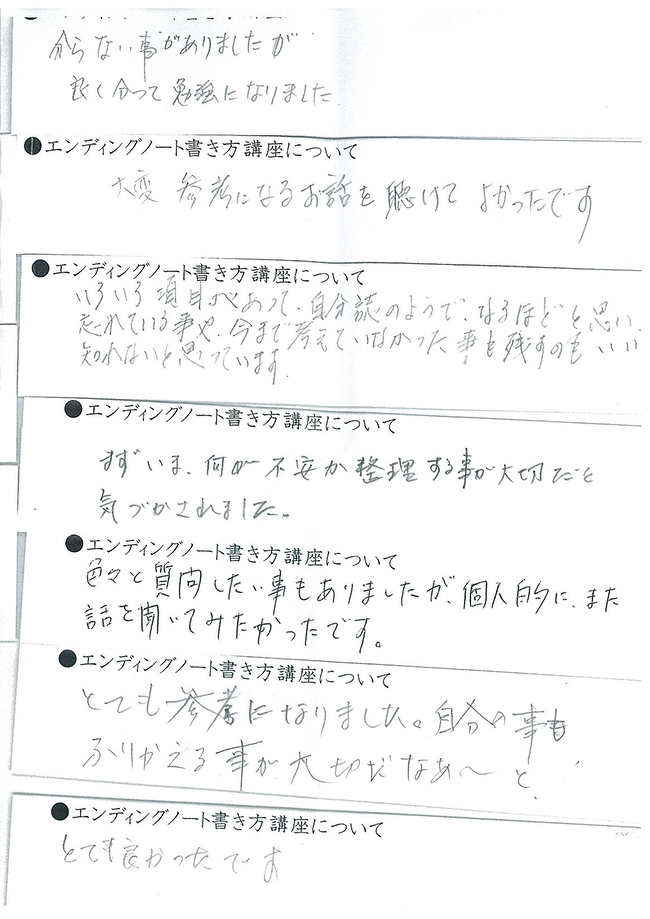 分らない事がありましたが
良く分って勉強になりました
●エンディングノート書き方講座について
大変 参考になるお話を聴けて よかったです
●エンディングノート書き方講座について
いろいろ項目があって、自分誌のようで、なるほどと思い、
忘れている事や、今まで考えていなかった事も残すのもいい
知れないと思っています。
●エンディングノート書き方講座について
まずいま、何が不安か整理する事が大切だと
気づかされました。
●エンディングノート書き方講座について
色々と質問したい事もありましたが、個人的に、また
話を聞いてみたかったです。
●エンディングノート書き方講座について
とても参考になりました。自分の事も
ふりかえる事が大切だなあ〜と、
●エンディングノート書き方講座について
とても良かったです